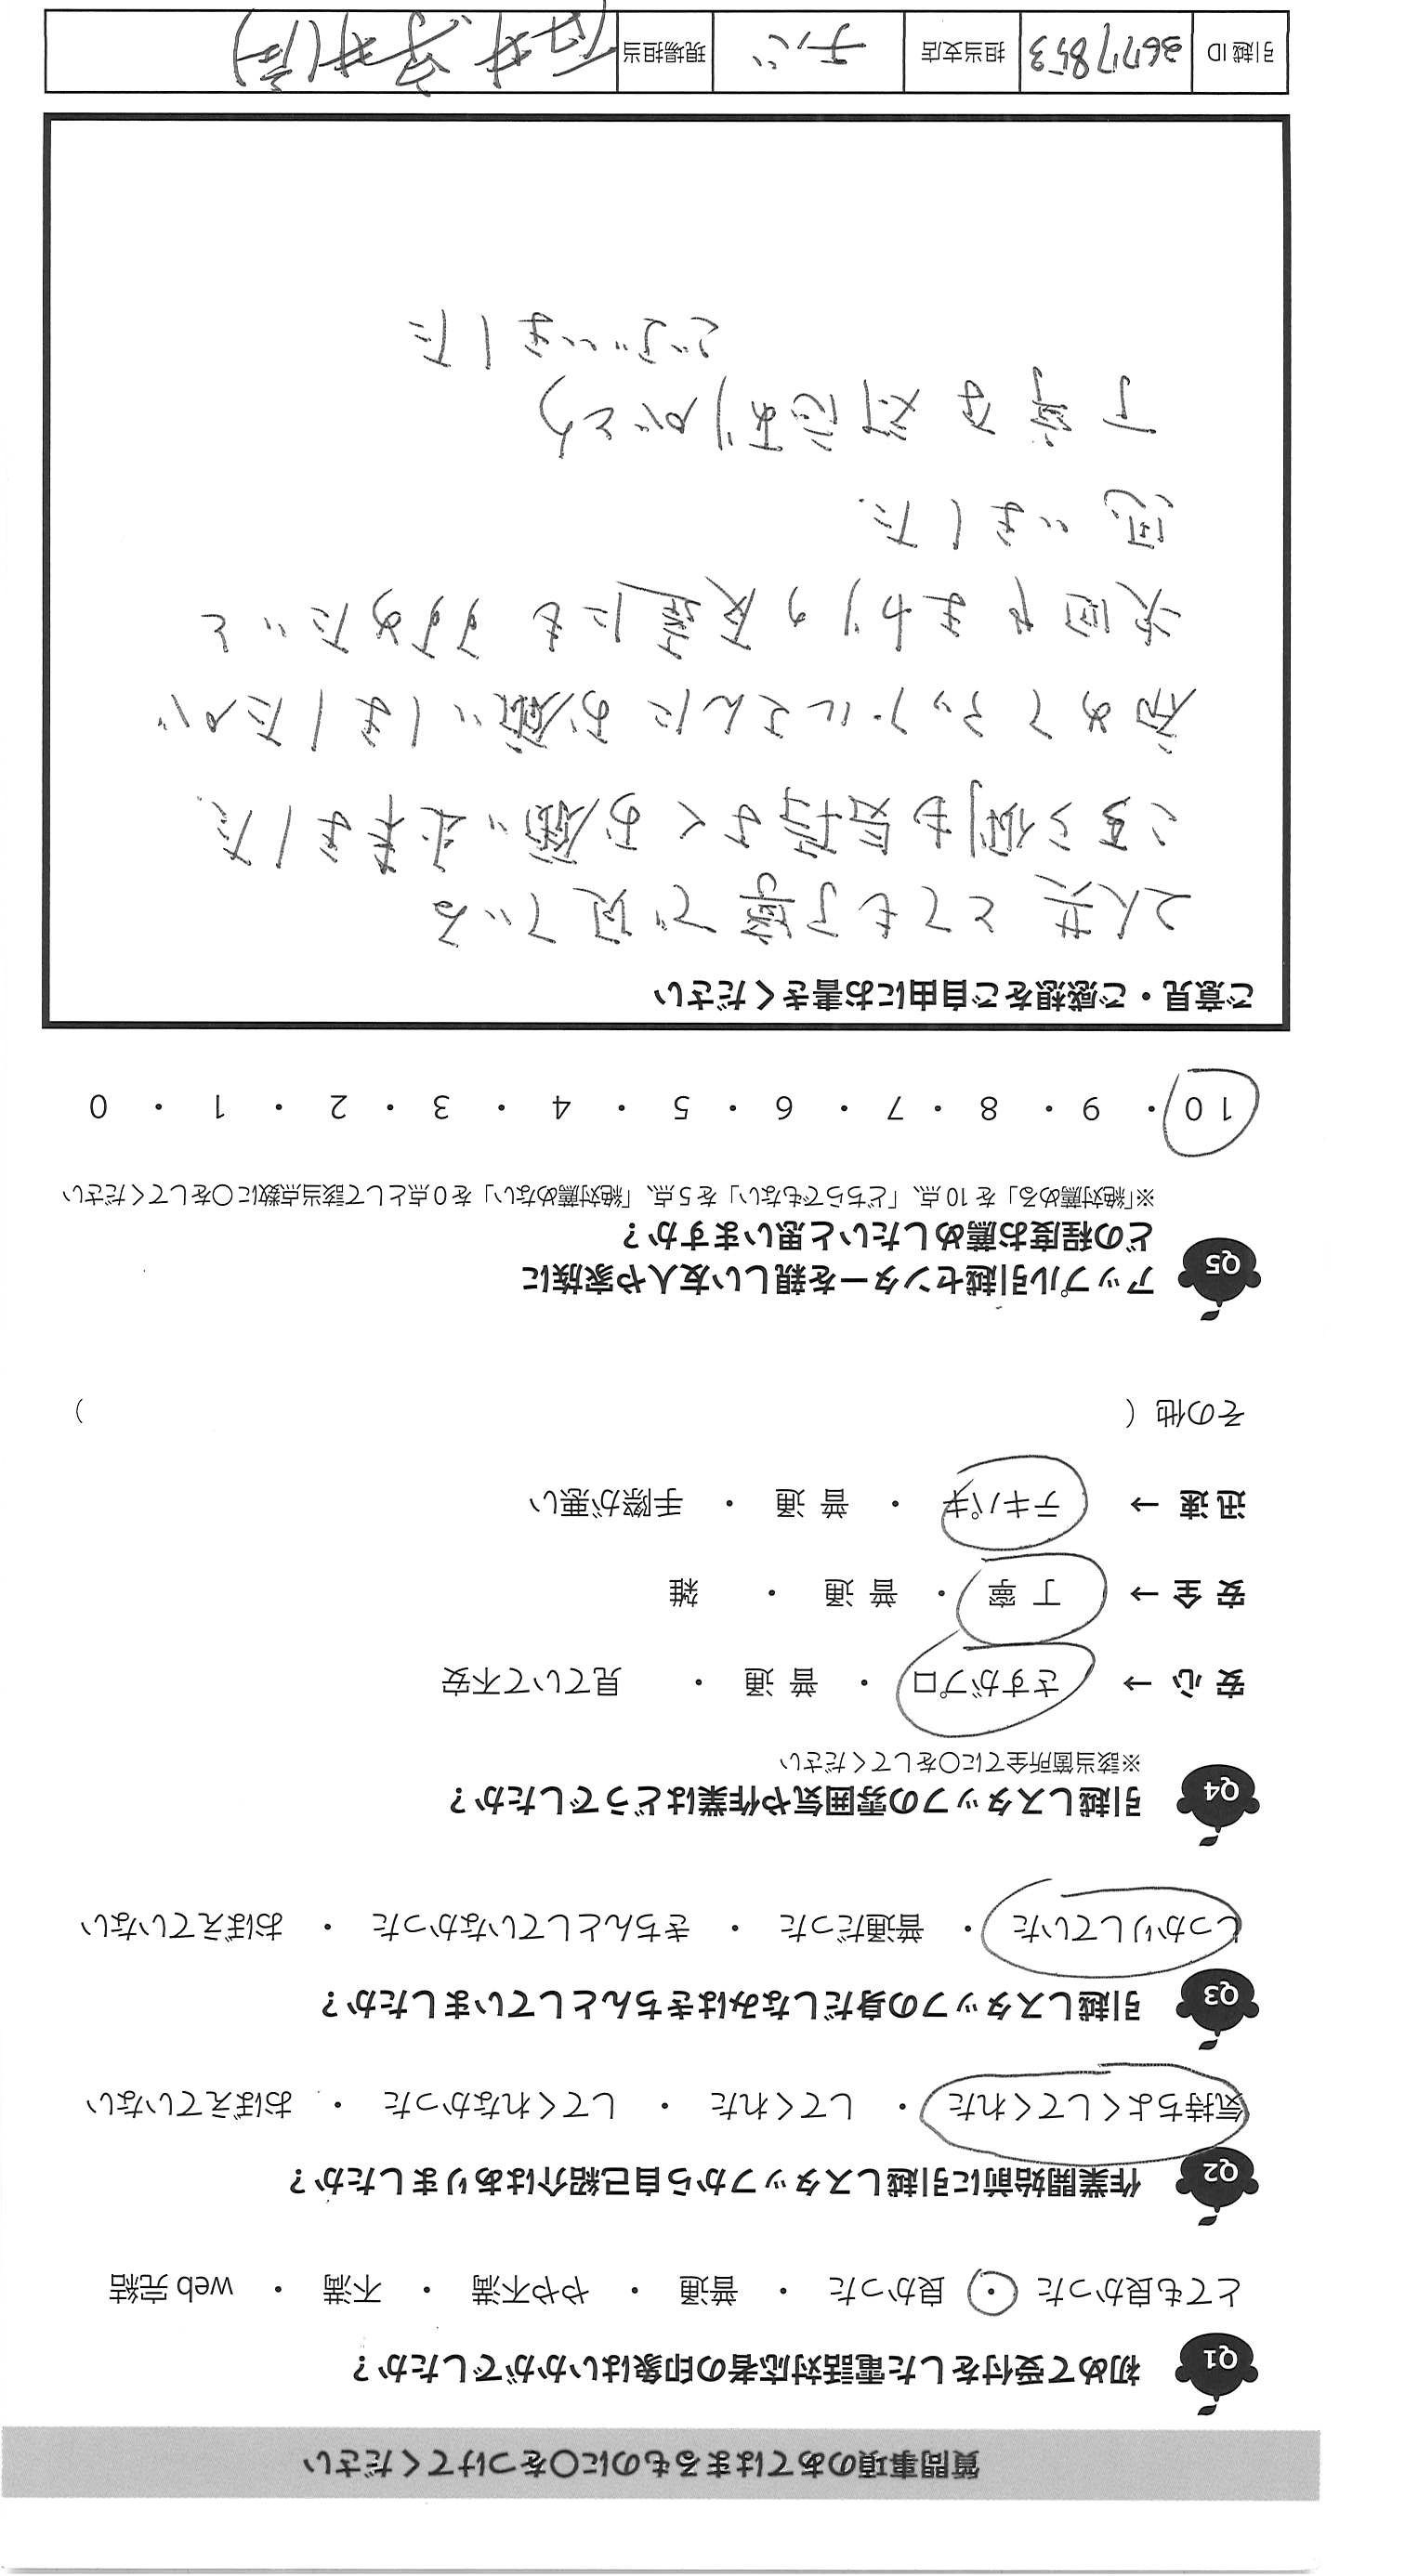 質問事項のあてはまるものに○をつけてください
Q1 初めて受付をした電話対応者の印象はいかがでしたか？
とても良かった ・ 良かった ・ 普通 ・ やや不満 ・ 不満 ・ web 完結
Q2 作業開始前に引越しスタッフから自己紹介はありましたか？
気持ちよくしてくれた ・ してくれた ・ してくれなかった ・ おぼえていない
Q3 引越しスタッフの身だしなみはきちんとしていましたか？
しっかりしていた ・ 普通だった ・ きちんとしていなかった ・ おぼえていない
Q4 引越しスタッフの雰囲気や作業はどうでしたか？
※該当箇所全てに○をしてください
安 心 → さすがプロ ・ 普 通 ・ 見ていて不安
安 全 → 丁 寧 ・ 普 通 ・ 雑
迅 速 → テキパキ ・ 普 通 ・ 手際が悪い
その他（ ）
Q5 アップル引越センターを親しい友人や家族に
どの程度お薦めしたいと思いますか？
※「絶対薦める」を10点、「どちらでもない」を5点、「絶対薦めない」を0点として該当点数に○をしてください
10 ・ 9 ・ 8 ・ 7 ・ 6 ・ 5 ・ 4 ・ 3 ・ 2 ・ 1 ・ 0
ご意見・ご感想をご自由にお書きください
2人共 とても丁寧で見ている
こちら側も気持よくお願い出来ました.
初めてアップルさんにお願いしましたが
次回やまわりの友達にも すすめたいと
思いました.
丁寧な対応ありがとう
ございました
引越ID 26717853 担当支店 チバ 現場担当